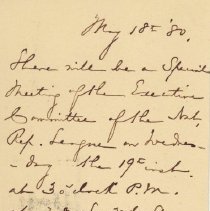 May 18th '80.
There will be a Special
Meeting of the Executive
Committee of the Nat.
Rep. League on Wednes-
-day the 19th inst.
at 3 o'clock P.M.
at